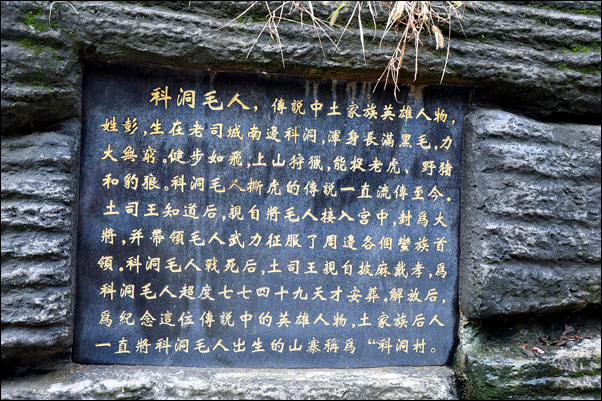 科洞毛人，傳說中土家族英雄人物，
姓彭，生在老司城南邊科洞，渾身長滿黑毛，力
大無窮。健步如飛，上山狩獵，能捉老虎、野豬
和豹狼。科洞毛人撕虎的傳說一直流傳至今。
土司王知道后，親自將毛人接入宮中，封爲大
將，并帶領毛人武力征服了周邊各個蠻族首
領。科洞毛人戰死后，土司王親自披麻戴孝，爲
科洞毛人超度七七四十九天才安葬。解放后，
爲紀念這位傳說中的英雄人物，土家族后人
一直將科洞毛人出生的山寨稱爲“科洞村。